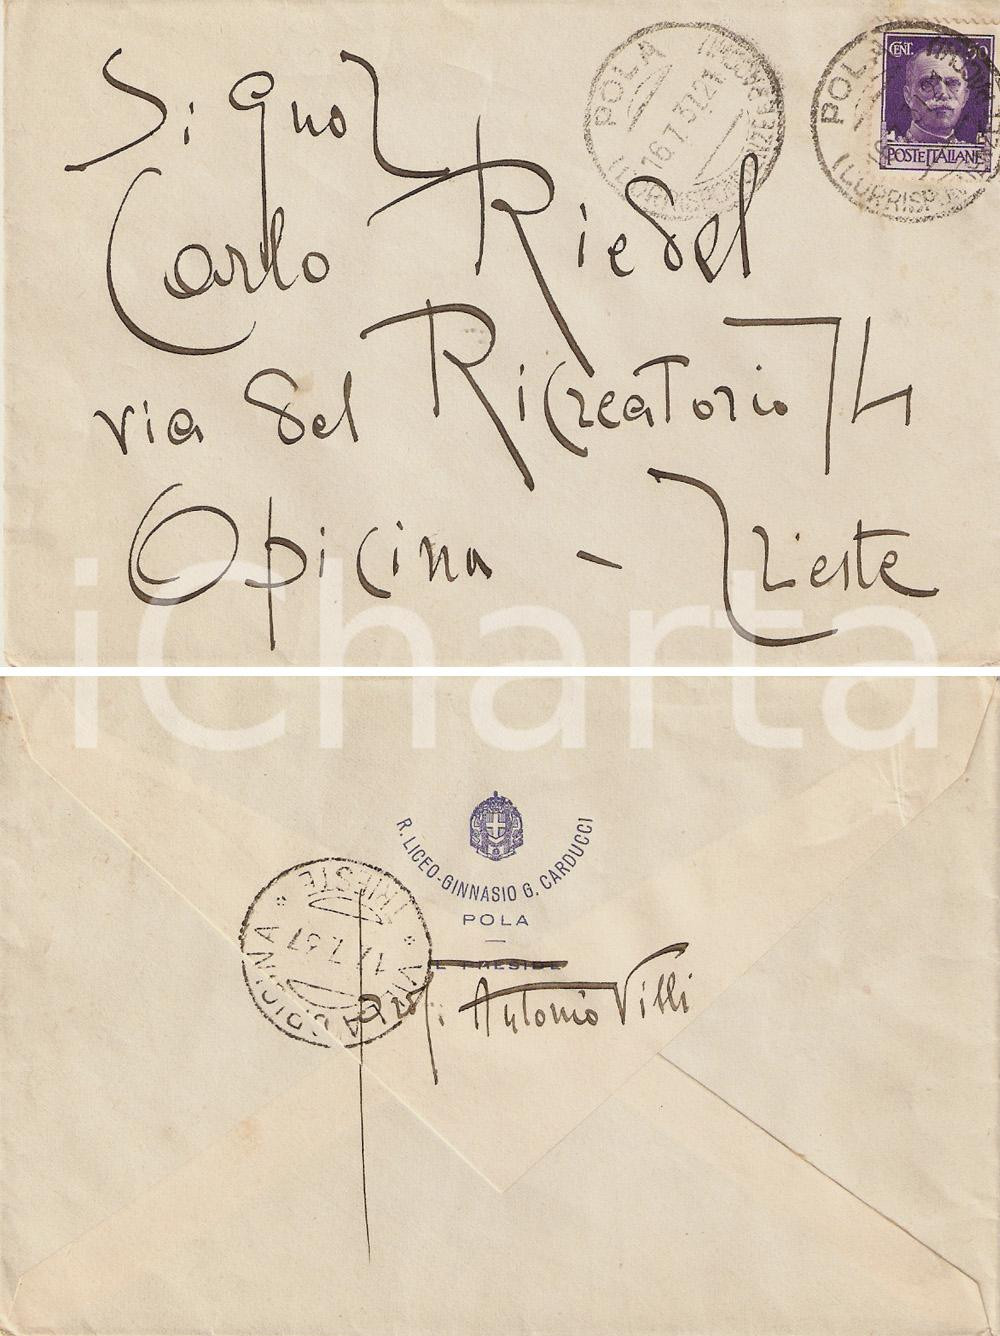 POLA
16.7.37.21
POLA
CENT. 50
POSTE ITALIANE
Signor
Carlo Riedel
via del Ricreatorio 74
Opicina - Trieste
iCharta
R. LICEO-GINNASIO G. CARDUCCI
POLA
IL PRESIDE
Prof. Antonio Villi
VILLA OPICINA
* TRIESTE *
17.7.37